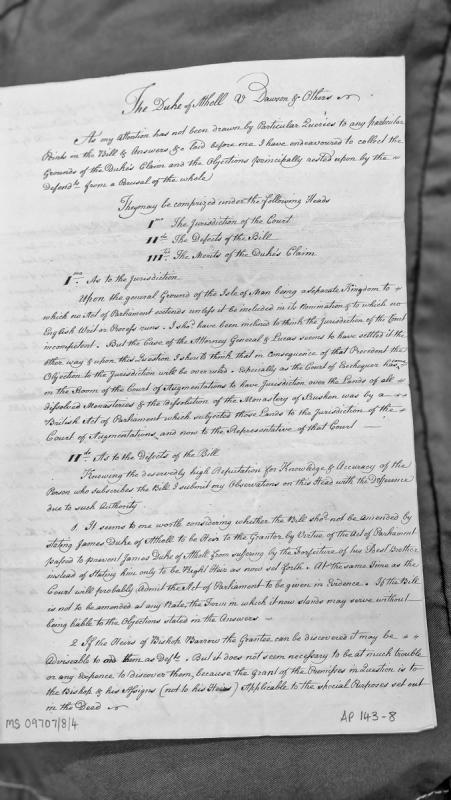 The Duke of Atholl V Dawson & Others
As my Attention has not been drawn by Particular Queries to any particular
Points in the Bill & Answers &c laid before me I have endeavoured to collect the
Grounds of the Duke's Claim and the Objections principally rested upon by the
Defend.ts from a Perusal of the whole
They may be comprized under the following Heads
I.mo The Jurisdiction of the Court
II.do The Defects of the Bill
III.tio The Merits of the Duke's Claim
I.mo As to the Jurisdiction
Upon the general Ground of the Isle of Man being a separate Kingdom to
which no Act of Parliament extends unless it be included in its Nomination & to which no
English Writ or Process runs. I sho.d have been inclined to think the Jurisdiction of the Court
incompetent. But the Case of the Attorney General & Lucas seems to have settled it the
other way & upon this Question I should think that in consequence of that Precedent the
Objection to the Jurisdiction will be over ruled. Especially as the Court of Exchequer has,
in the Room of the Court of Augmentations to have Jurisdiction over the Lands of all
dissolved Monasteries & the dissolution of the Monastery of Rushen was by a
British Act of Parliament which subjected those Lands to the Jurisdiction of the
Court of Augmentations and now to the Representative of that Court
II.do As to the Defects of the Bill
Knowing the deservedly high Reputation for Knowledge & Accuracy of the
Person who subscribes the Bill I submit my Observations on this Head with the Defference
due to such Authority
1. It seems to me worth considering whether the Bill sho.d not be amended by
stating James Duke of Atholl to be Heir to the Grantor by Virtue of the Act of Parliament
passed to prevent James Duke of Atholl from suffering by the Forfeiture of his Eldest Brother
instead of Stating him only to be Right Heir as now set forth. At the same Time as the
Court will probably admit the Act of Parliament to be given in Evidence. If the Bill
is not to be amended at any Rate, the Form in which it now stands may serve without
being liable to the Objections stated in the Answers
2 If the Heirs of Bishop Barrow the Grantee can be discovered it may be
Adviseable to them as Def.ts. But it does not seem necessary to be at much trouble
or any Expence to discover them, because the Grant of the Premisses in Question is to
the Bishop & his Assigns (not to his Heirs) Applicable to the special Purposes set out
in the Deed
MS 09707/8/4
AP 143-8